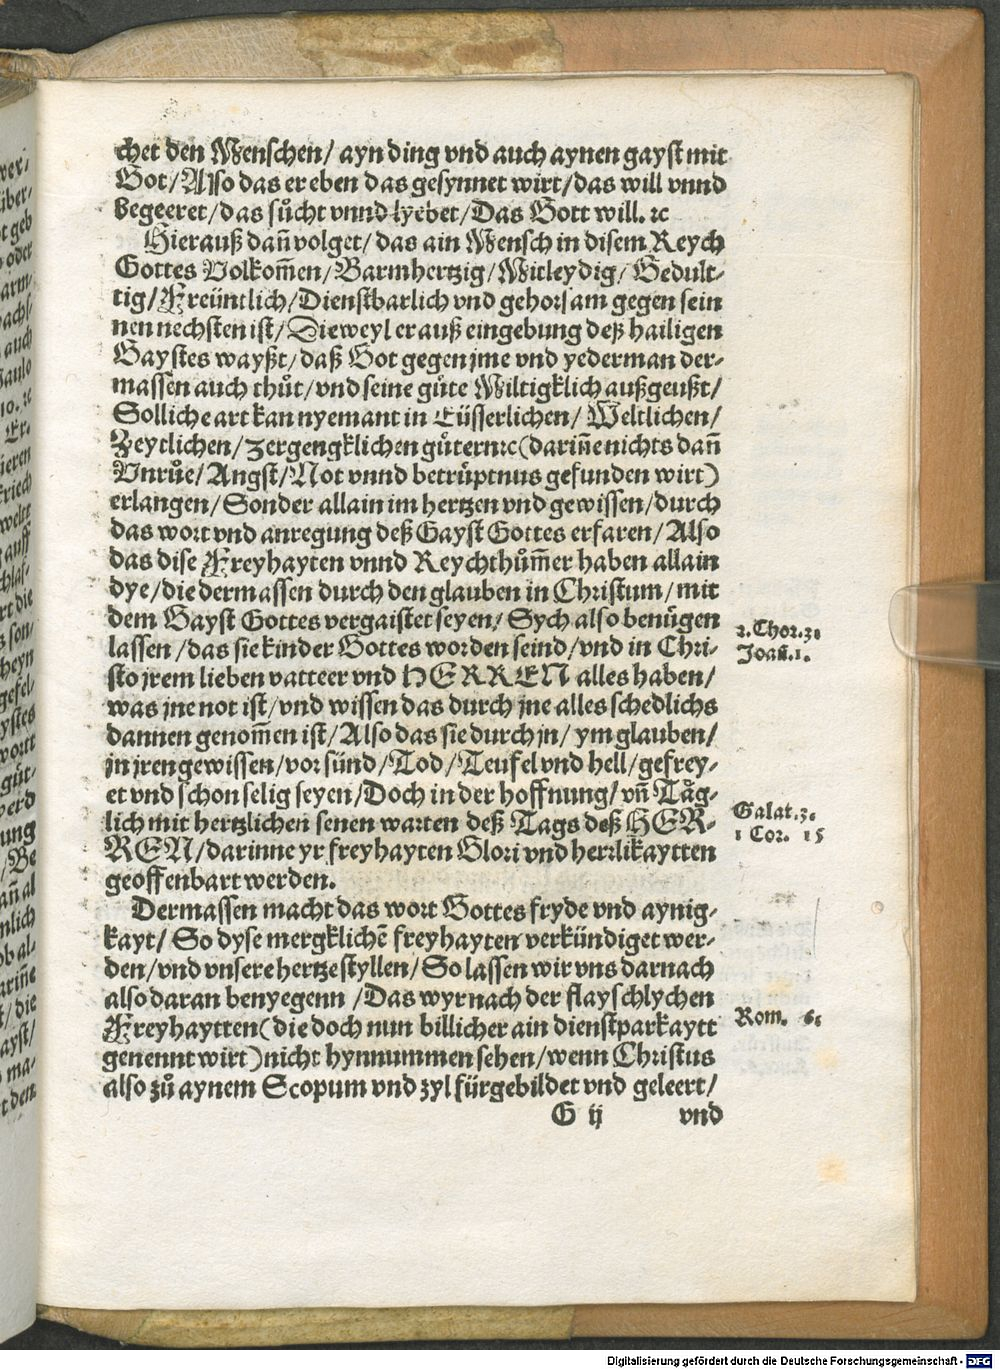 chet den Menschen/ ayn ding vnd auch aynen gayst mit
Got/ Also das er eben das gesynnet wirt/ das will vnnd
begeeret/ das sůcht vnnd lyebet/ Das Gott will. ꝛc
Hierauß dañ volget/ das ain Mensch in disem Reych
Gottes Volkom̃en/ Barmhertzig/ Mitleydig/ Gedult-
tig/ Freüntlich/ Dienstbarlich vnd gehorsam gegen sein
nen nechsten ist/ Dieweyl er auß eingebung deß hailigen
Gaystes wayßt/ daß Got gegen jme vnd yederman der-
massen auch thůt/ vnd seine gůte Miltigklich außgeußt/
Solliche art kan nyemant in Eüsserlichen/ Weltlichen/
Zeytlichen/ zergengklichen gůtern ꝛc (dariñe nichts dañ
Vnrůe/ Angst/ Not vnnd betrüptnus gefunden wirt)
erlangen/ Sonder allain im hertzen vnd gewissen/ durch
das wort vnd anregung deß Gayst Gottes erfaren/ Also
das dise Freyhayten vnnd Reychthům̃er haben allain
dye/ die dermassen durch den glauben in Christum/ mit
dem Gayst Gottes vergaistet seyen/ Sych also benügen
lassen/ das sie kinder Gottes worden seind/ vnd in Chri-
sto jrem lieben vatteer vnd HERREN alles haben/
was jne not ist/ vnd wissen das durch jne alles schedlichs
dannen genom̃en ist/ Also das sie durch jn/ ym glauben/
jn jren gewissen/ vor sünd/ Tod/ Teufel vnd hell/ gefrey-
et vnd schon selig seyen/ Doch in der hoffnung/ vñ Täg-
lich mit hertzlichen senen warten deß Tags deß HER-
REN/ darinne yr freyhayten Glori vnd herrlikaytten
geoffenbart werden.
Dermassen macht das wort Gottes fryde vnd aynig-
kayt/ So dyse mergklichẽ freyhayten verkündiget wer-
den/ vnd vnsere hertze styllen/ So lassen wir vns darnach
also daran benyegenn/ Das wyr nach der flayschlychen
Freyhaytten (die doch nun billicher ain dienstparkaytt
genennt wirt) nicht hynnummen sehen/ wenn Christus
also zů aynem Scopum vnd zyl fürgebildet vnd geleert/
G ij vnd
2. Chor. 3.
Joañ. 1.
Galat. 3.
1 Cor. 15
Rom. 6.
Digitalisierung gefördert durch die Deutsche Forschungsgemeinschaft - DFG